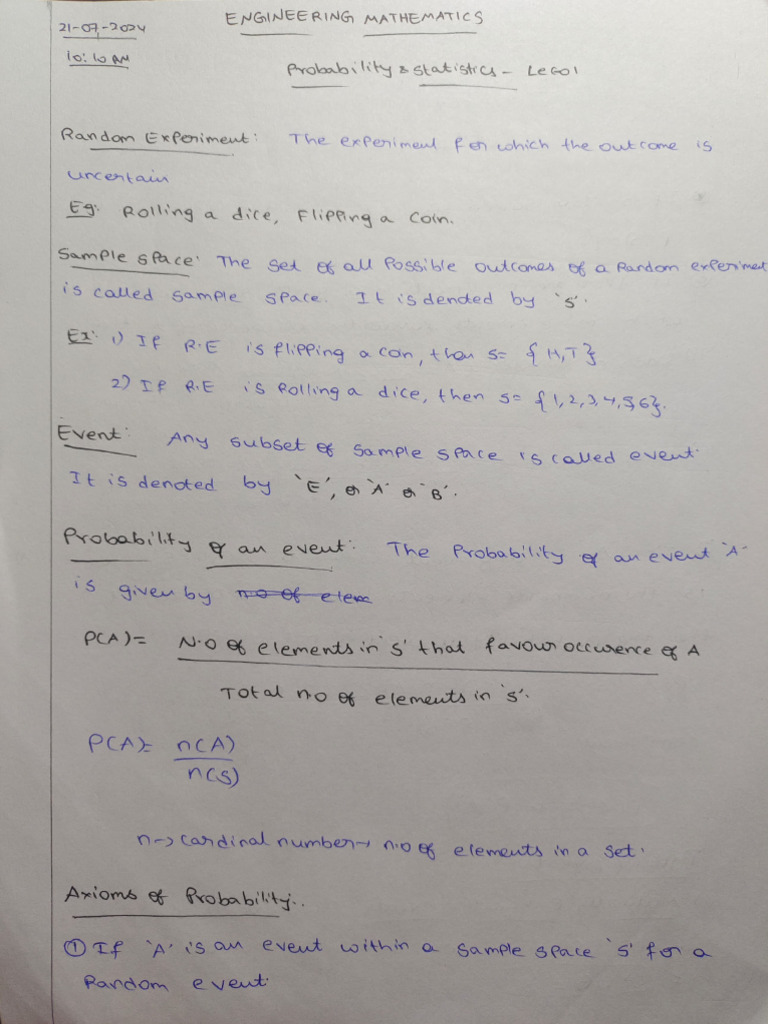 21-07-2024
ENGINEERING MATHEMATICS
10:10 AM
Probability & Statistics - Lec01
Random Experiment: The experiment for which the outcome is
uncertain
Eg: Rolling a dice, Flipping a coin.
Sample space: The set of all possible outcomes of a random experiment
is called sample space. It is denoted by 'S'.
Ex: 1) If R.E is flipping a coin, then S = {H,T}
2) If R.E is rolling a dice, then S = {1,2,3,4,5,6}.
Event: Any subset of sample space is called event.
It is denoted by 'E', or 'A' or 'B'.
Probability of an event: The probability of an event 'A'
is given by no of elem
P(A) = N.O of elements in 'S' that favour occurence of A
Total no of elements in 'S'.
P(A) = n(A)
n(S)
n → cardinal number → n.o of elements in a set.
Axioms of Probability:.
① If 'A' is an event within a sample space 'S' for a
random event.